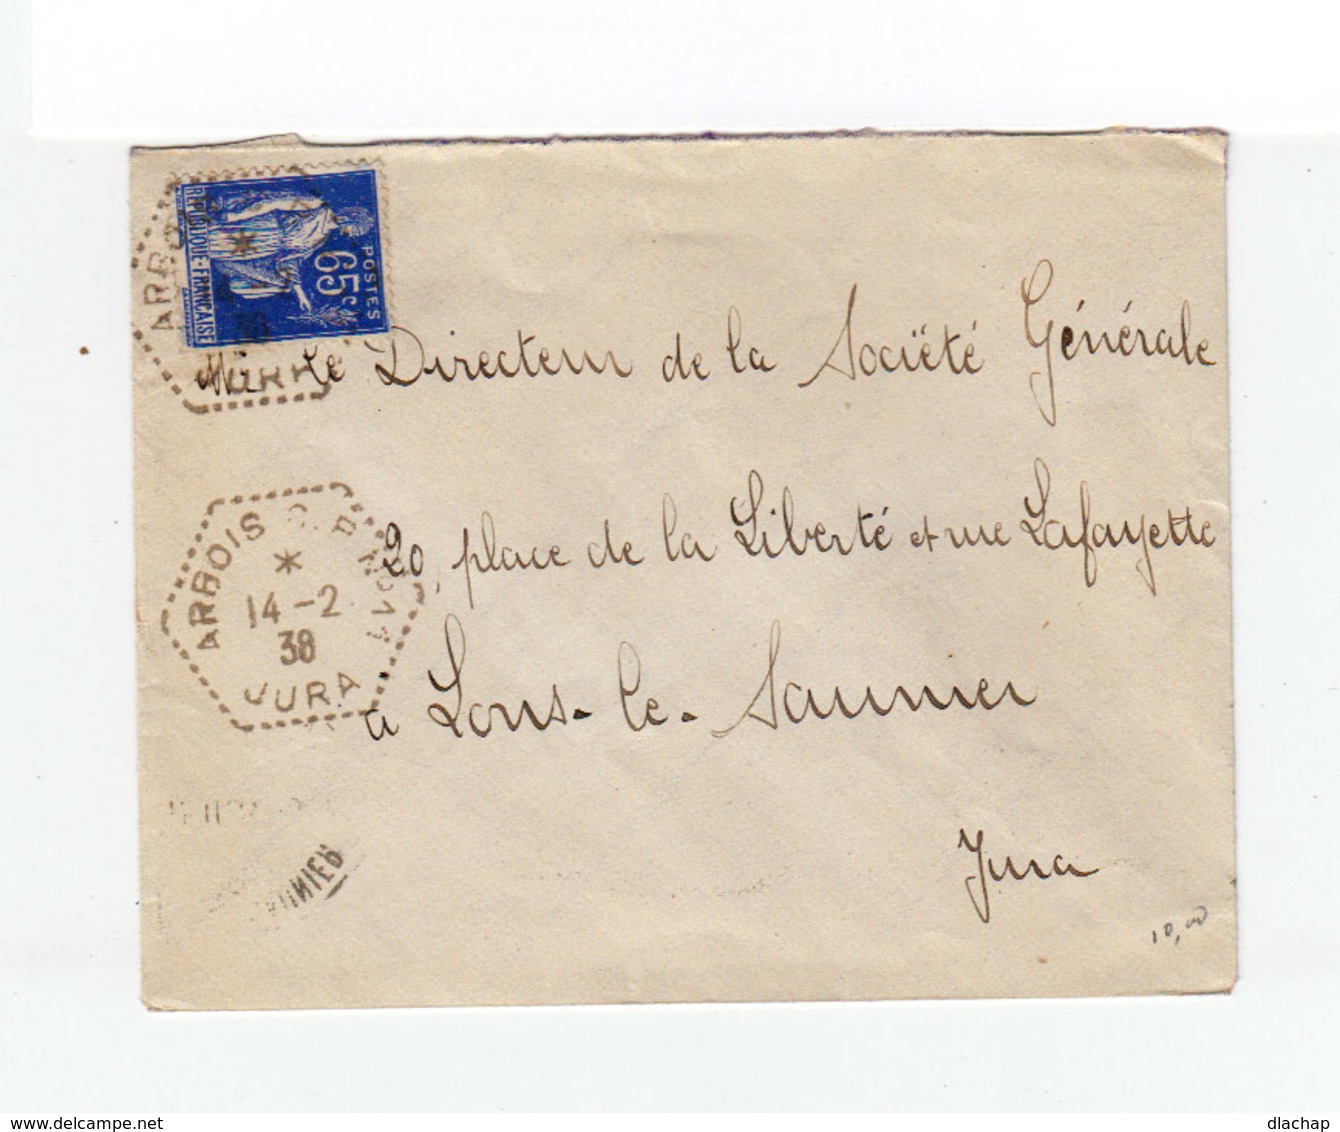 REPUBLIQUE - FRANÇAISE
65 c
POSTES
ARBOIS
JURA
le Directeur de la Société Générale
ARBOIS
14 - 2
38
JURA
20, place de la Liberté et rue Lafayette
à Lons-le-Saunier
Jura
10,00
delcampe.net
dlachap